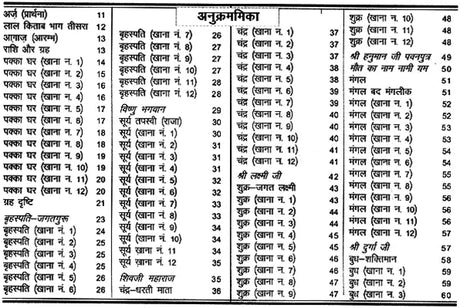 अनुक्रममिका
अर्ज़ (प्रार्थना) 11
लाल किताब भाग तीसरा 12
आग़ाज़ (आरम्भ) 13
राशि और ग्रह 13
पक्का घर (खाना न. 1) 14
पक्का घर (खाना न. 2) 15
पक्का घर (खाना न. 3) 16
पक्का घर (खाना न. 4) 16
पक्का घर (खाना न. 5) 17
पक्का घर (खाना न. 6) 17
पक्का घर (खाना न. 7) 18
पक्का घर (खाना न. 8) 18
पक्का घर (खाना न. 9) 19
पक्का घर (खाना न. 10) 19
पक्का घर (खाना न. 11) 20
पक्का घर (खाना न. 12) 20
ग्रह दृष्टि 21
बृहस्पति-जगतगुरू 23
बृहस्पति (खाना न. 1) 24
बृहस्पति (खाना न. 2) 24
बृहस्पति (खाना न. 3) 25
बृहस्पति (खाना न. 4) 25
बृहस्पति (खाना न. 5) 26
बृहस्पति (खाना न. 6) 26
बृहस्पति (खाना न. 7) 26
बृहस्पति (खाना न. 8) 27
बृहस्पति (खाना न. 9) 27
बृहस्पति (खाना न. 10) 27
बृहस्पति (खाना न. 11) 28
बृहस्पति (खाना न. 12) 28
विष्णु भगवान 29
सूर्य तपस्वी (राजा) 30
सूर्य (खाना न. 1) 30
सूर्य (खाना न. 2) 30
सूर्य (खाना न. 3) 31
सूर्य (खाना न. 4) 31
सूर्य (खाना न. 5) 32
सूर्य (खाना न. 6) 32
सूर्य (खाना न. 7) 33
सूर्य (खाना न. 8) 33
सूर्य (खाना न. 9) 34
सूर्य (खाना न. 10) 34
सूर्य (खाना न. 11) 34
सूर्य (खाना न. 12) 35
शिवजी महाराज 35
चंद्र-धरती माता 36
चंद्र (खाना न. 1) 37
चंद्र (खाना न. 2) 37
चंद्र (खाना न. 3) 38
चंद्र (खाना न. 4) 38
चंद्र (खाना न. 5) 38
चंद्र (खाना न. 6) 39
चंद्र (खाना न. 7) 39
चंद्र (खाना न. 8) 40
चंद्र (खाना न. 9) 40
चंद्र (खाना न. 10) 40
चंद्र (खाना न. 11) 41
चंद्र (खाना न. 12) 41
श्री लक्ष्मी जी 42
शुक्र-जगत लक्ष्मी 43
शुक्र (खाना न. 1) 43
शुक्र (खाना न. 2) 44
शुक्र (खाना न. 3) 44
शुक्र (खाना न. 4) 45
शुक्र (खाना न. 5) 45
शुक्र (खाना न. 6) 46
शुक्र (खाना न. 7) 46
शुक्र (खाना न. 8) 47
शुक्र (खाना न. 9) 47
शुक्र (खाना न. 10) 48
शुक्र (खाना न. 11) 48
शुक्र (खाना न. 12) 48
श्री हनुमान जी पवनपुत्र 49
मौत का नाम नामी यम 50
मंगल 51
मंगल बद मंगलीक 51
मंगल (खाना न. 1) 52
मंगल (खाना न. 2) 52
मंगल (खाना न. 3) 53
मंगल (खाना न. 4) 54
मंगल (खाना न. 5) 54
मंगल (खाना न. 6) 54
मंगल (खाना न. 7) 55
मंगल (खाना न. 8) 55
मंगल (खाना न. 9) 56
मंगल (खाना न. 10) 56
मंगल (खाना न. 11) 56
मंगल (खाना न. 12) 57
श्री दुर्गा जी 57
बुध-शक्तिमान 58
बुध (खाना न. 1) 59
बुध (खाना न. 2) 59
बुध (खाना न. 3) 60